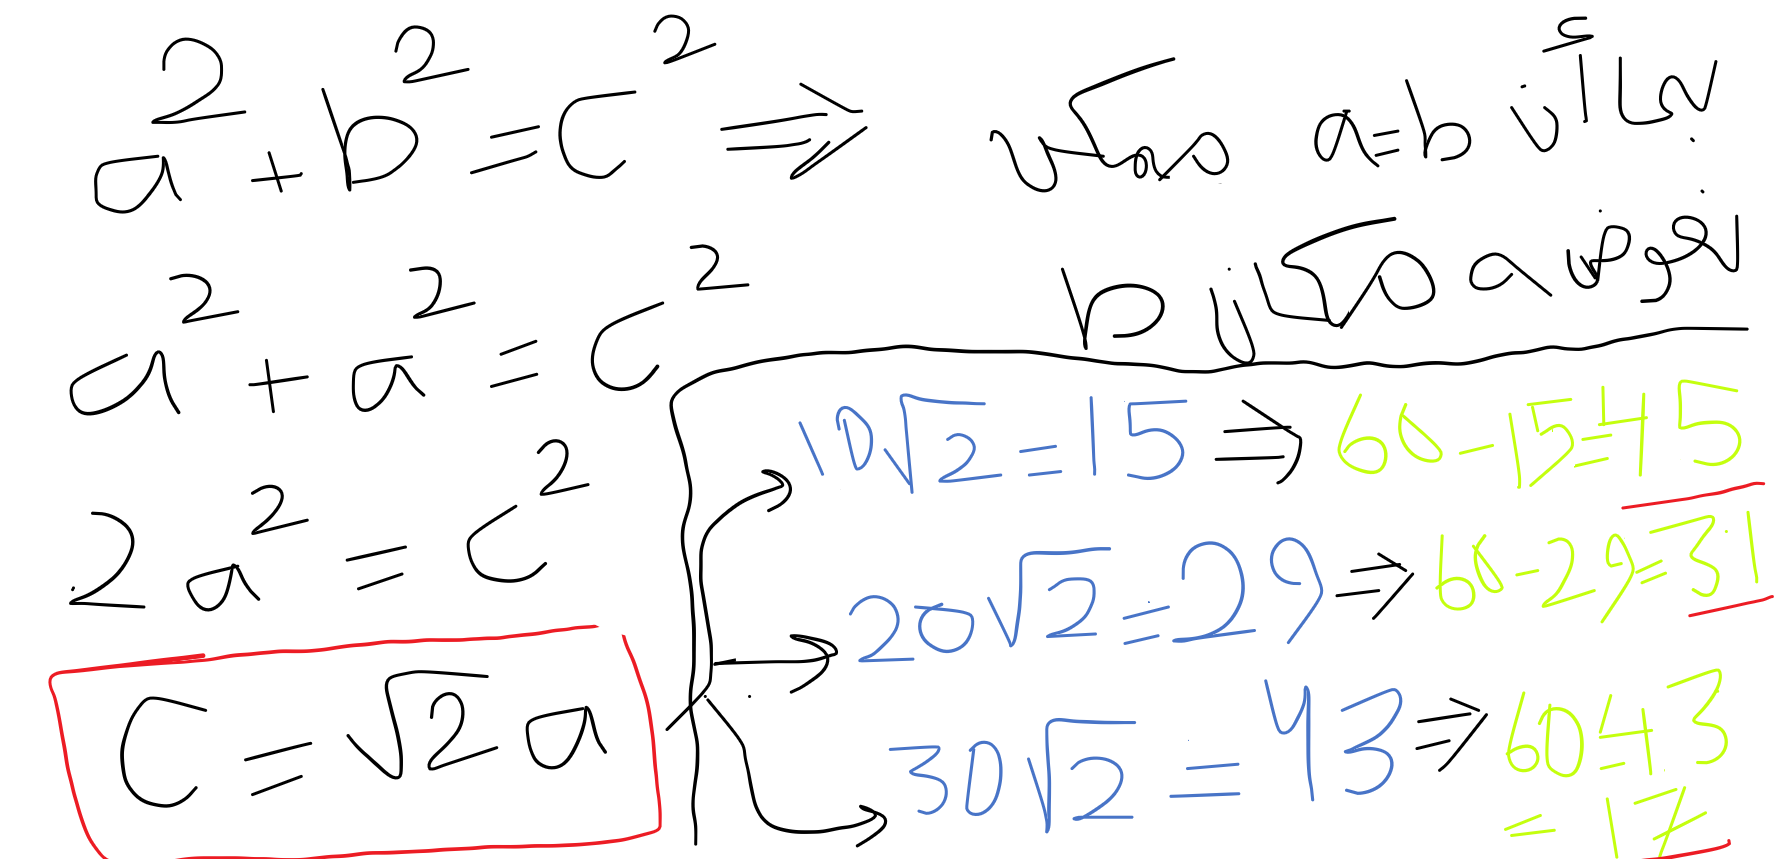 a² + b² = c² ⇒ بما أن a=b
نعوض a مكان b
a² + a² = c²
2a² = c²
c = √2 a
10√2 = 15 ⇒ 60 - 15 = 45
20√2 = 29 ⇒ 60 - 29 = 31
30√2 = 43 ⇒ 60 - 43
= 17